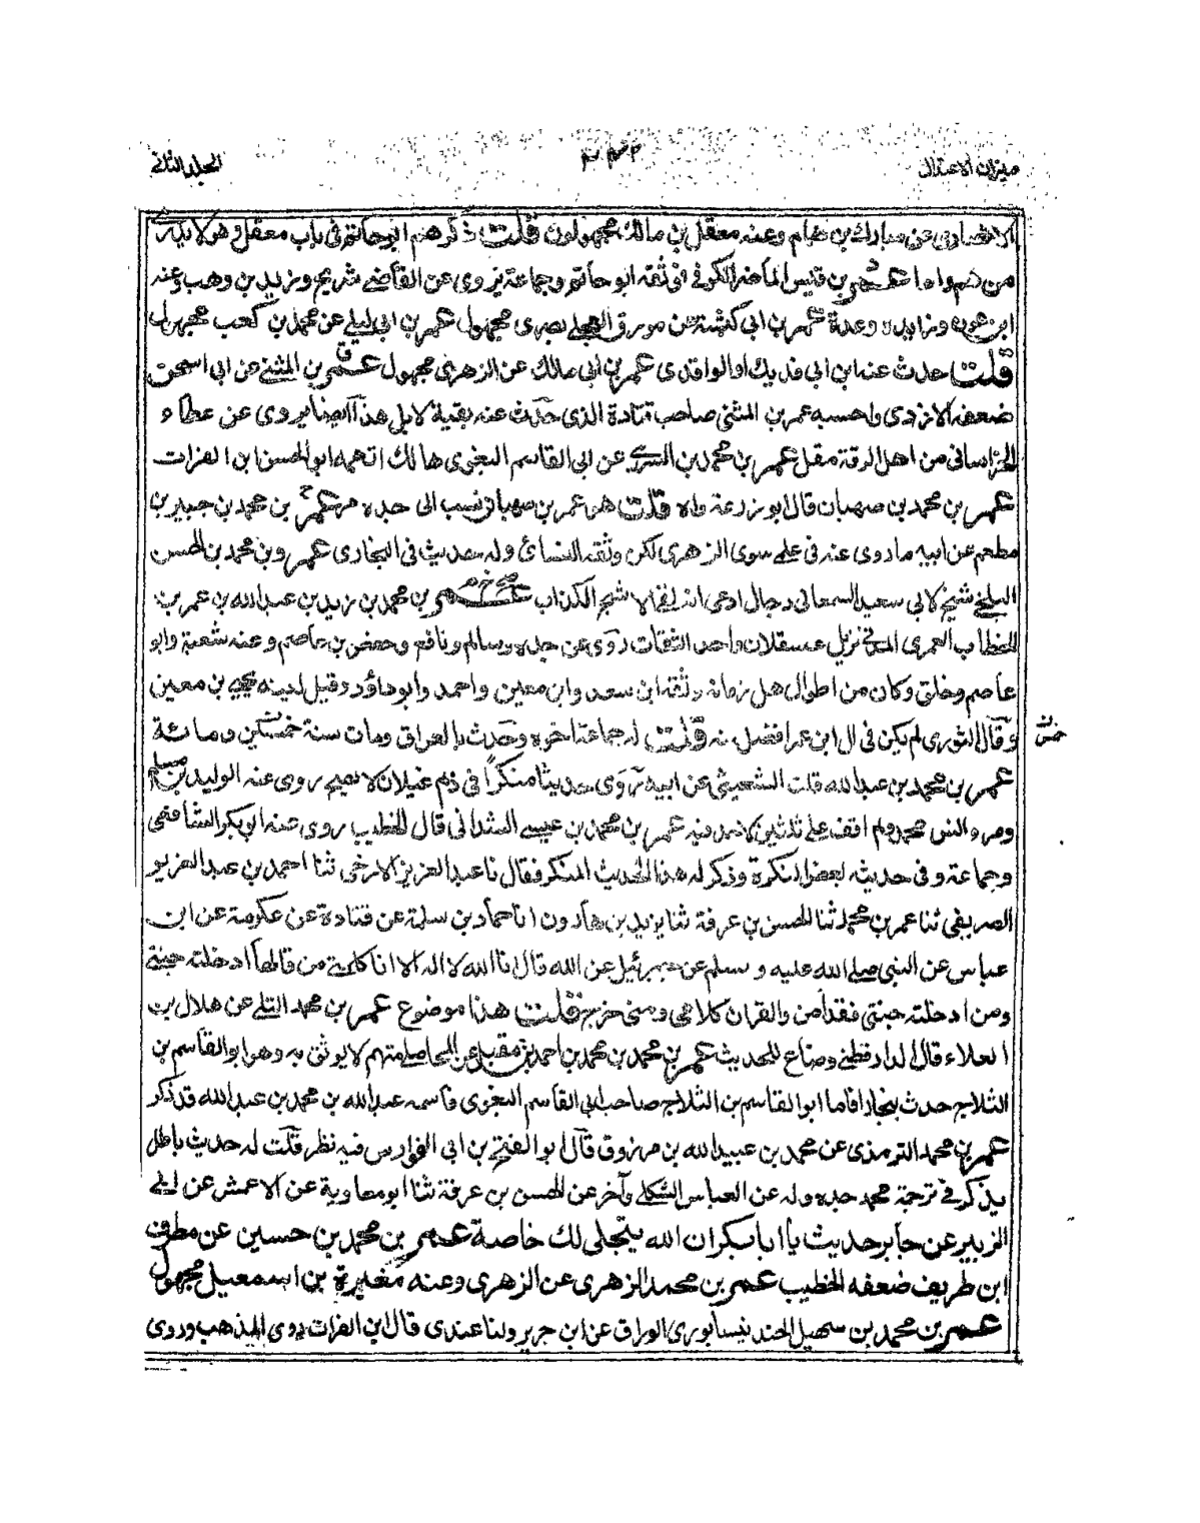 ميزان الاعتدال
الجلد الثانى
الانصارى عن مبارك بن همام وعنه معقل بن مالك مجهولون قلت ذكرهم ابو حاتم فى باب معقل وهو لا يدرى
من هم واما عمر بن قيس الماصر الكوفى فى ثقه ابو حاتم وجماعة يروى عن القاضى شريح وزيد بن وهب وعنه
ابن عون وزايده وعدة عمر بن ابى كبشة عن مورق العجلى بصرى مجهول عمر بن ابى ليلى عن محمد بن كعب مجهول
قلت حدث عنه ابن ابى فديك او الواقدى عمر بن ابى مالك عن الزهرى مجهول عمر بن المثنى عن ابى اسحق
ضعفه الازدى واحسبه عمر بن المثنى صاحب قتادة الذى حدث عنه بقية لا بل هذا ايضا يروى عن عطاء
الخراسانى من اهل الرقة مقل عمر بن محمد بن السرى عن ابى القاسم البغوى هالك اتهمه ابو الحسن ابن الفرات
عمر بن محمد بن صهبان قال ابو زرعة واه قلت هو عمر بن صهبان نسب الى جده مر عمر بن محمد بن جبير بن
مطعم عن ابيه ما روى عنه فى على سوى الزهرى لكن وثقه النسائ وله حديث فى البخارى عمر وبن محمد بن الحسن
البلخى شيخ لابى سعيد السمعانى دجال ادعى انه لقى الاشج الكذاب عمر بن محمد بن زيد بن عبد الله بن عمر بن
الخطاب العمرى المدنى نزيل عسقلان واحد الثقات روى عن جده وسالم ونافع وحفص بن عاصم وعنه شعبة وابو
عاصم وخلق وكان من اطول اهل زمانه وثقه ابن سعد وابن معين واحمد وابو داؤد وقيل لينه يحيى بن معين
وقال الثورى لم يكن فى ال ابن عمر افضل منه قلت له جماعة اخوه وحدث بالعراق ومات سنة خمسين ومائة
عمر بن محمد بن عبد الله قلت الشعيثى عن ابيه روى حديثا منكرا فى ذم غيلان لا يصح روى عنه الوليد بن مسلم
ومروالنس محمد ولم اقف على تلثيين لاحد فيه عمر بن محمد بن عيسى السذابى قال الخطيب روى عنه ابو بكر الشافعى
وجماعة وفى حديثه بعض النكرة وذكر له هذا الحديث المنكر فقال نا عبد العزيز الازجى ثنا احمد بن عبد العزيز
الصريفى ثنا عمر بن محمد ثنا الحسن بن عرفة ثنا يزيد بن هارون انا حماد بن سلمة عن قتادة عن عكرمة عن ابن
عباس عن النبى صلى الله عليه وسلم عن جبرئيل عن الله قال انا الله لا اله الا انا كلمتى من قالها ادخلته جنتى
ومن ادخلته جنتى فقد امن والقران كلامى ومنى خرج قلت هذا موضوع عمر بن محمد التلى عن هلال بن
العلاء قال الدارقطنى وضاع للحديث عمر بن محمد بن محمد بن احمد بن مقبل عن المحاملى متهم لا يوثق به وهو ابو القاسم بن
الثلاج حدث ببخارا فاما ابو القاسم بن الثلاج صاحب ابى القاسم البغوى فاسمه عبد الله بن محمد بن عبد الله قد ذكر
عمر بن محمد الترمذى عن محمد بن عبيد الله بن مرزوق قال ابو الفتح بن ابى الفوارس فيه نظر قلت له حديث باطل
يذكر فى ترجمة محمد جده وله عن العباس الشكلى وآخر عن الحسن بن عرفة ثنا ابو معاوية عن الاعمش عن ابى
الزبير عن جابر حديث يا ابا بكر ان الله يتجلى لك خاصة عمر بن محمد بن حسين عن مطرف
ابن طريف ضعفه الخطيب عمر بن محمد الزهرى عن الزهرى وعنه مغيرة بن اسمعيل مجهول
عمر بن محمد بن سهيل الجند نيسابورى الوراق عن ابن جرير ولنا عندى قال ابن الفرات ردى المذهب وروى